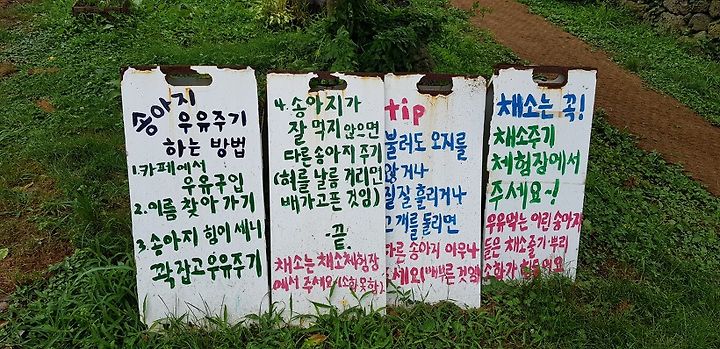 송아지
우유주기
하는 방법
1. 카페에서
우유구입
2. 이름 찾아 가기
3. 송아지 힘이 쎄니
꽉잡고 우유주기
4. 송아지가
잘 먹지 않으면
다른 송아지 주기
(혀를 날름 거리면
배가고픈 것임)
-끝.
채소는 채소체험장
에서 주세요 (소화못함)
tip
불러도 오지를
않거나
질질 흘리거나
고개를 돌리면
다른 송아지 이유나
주세요 (배부른 것임)
채소는 꼭!
채소주기
체험장에서
주세요~!
우유먹는 어린 송아지
들은 채소줄기·뿌리
소화가 힘들어요